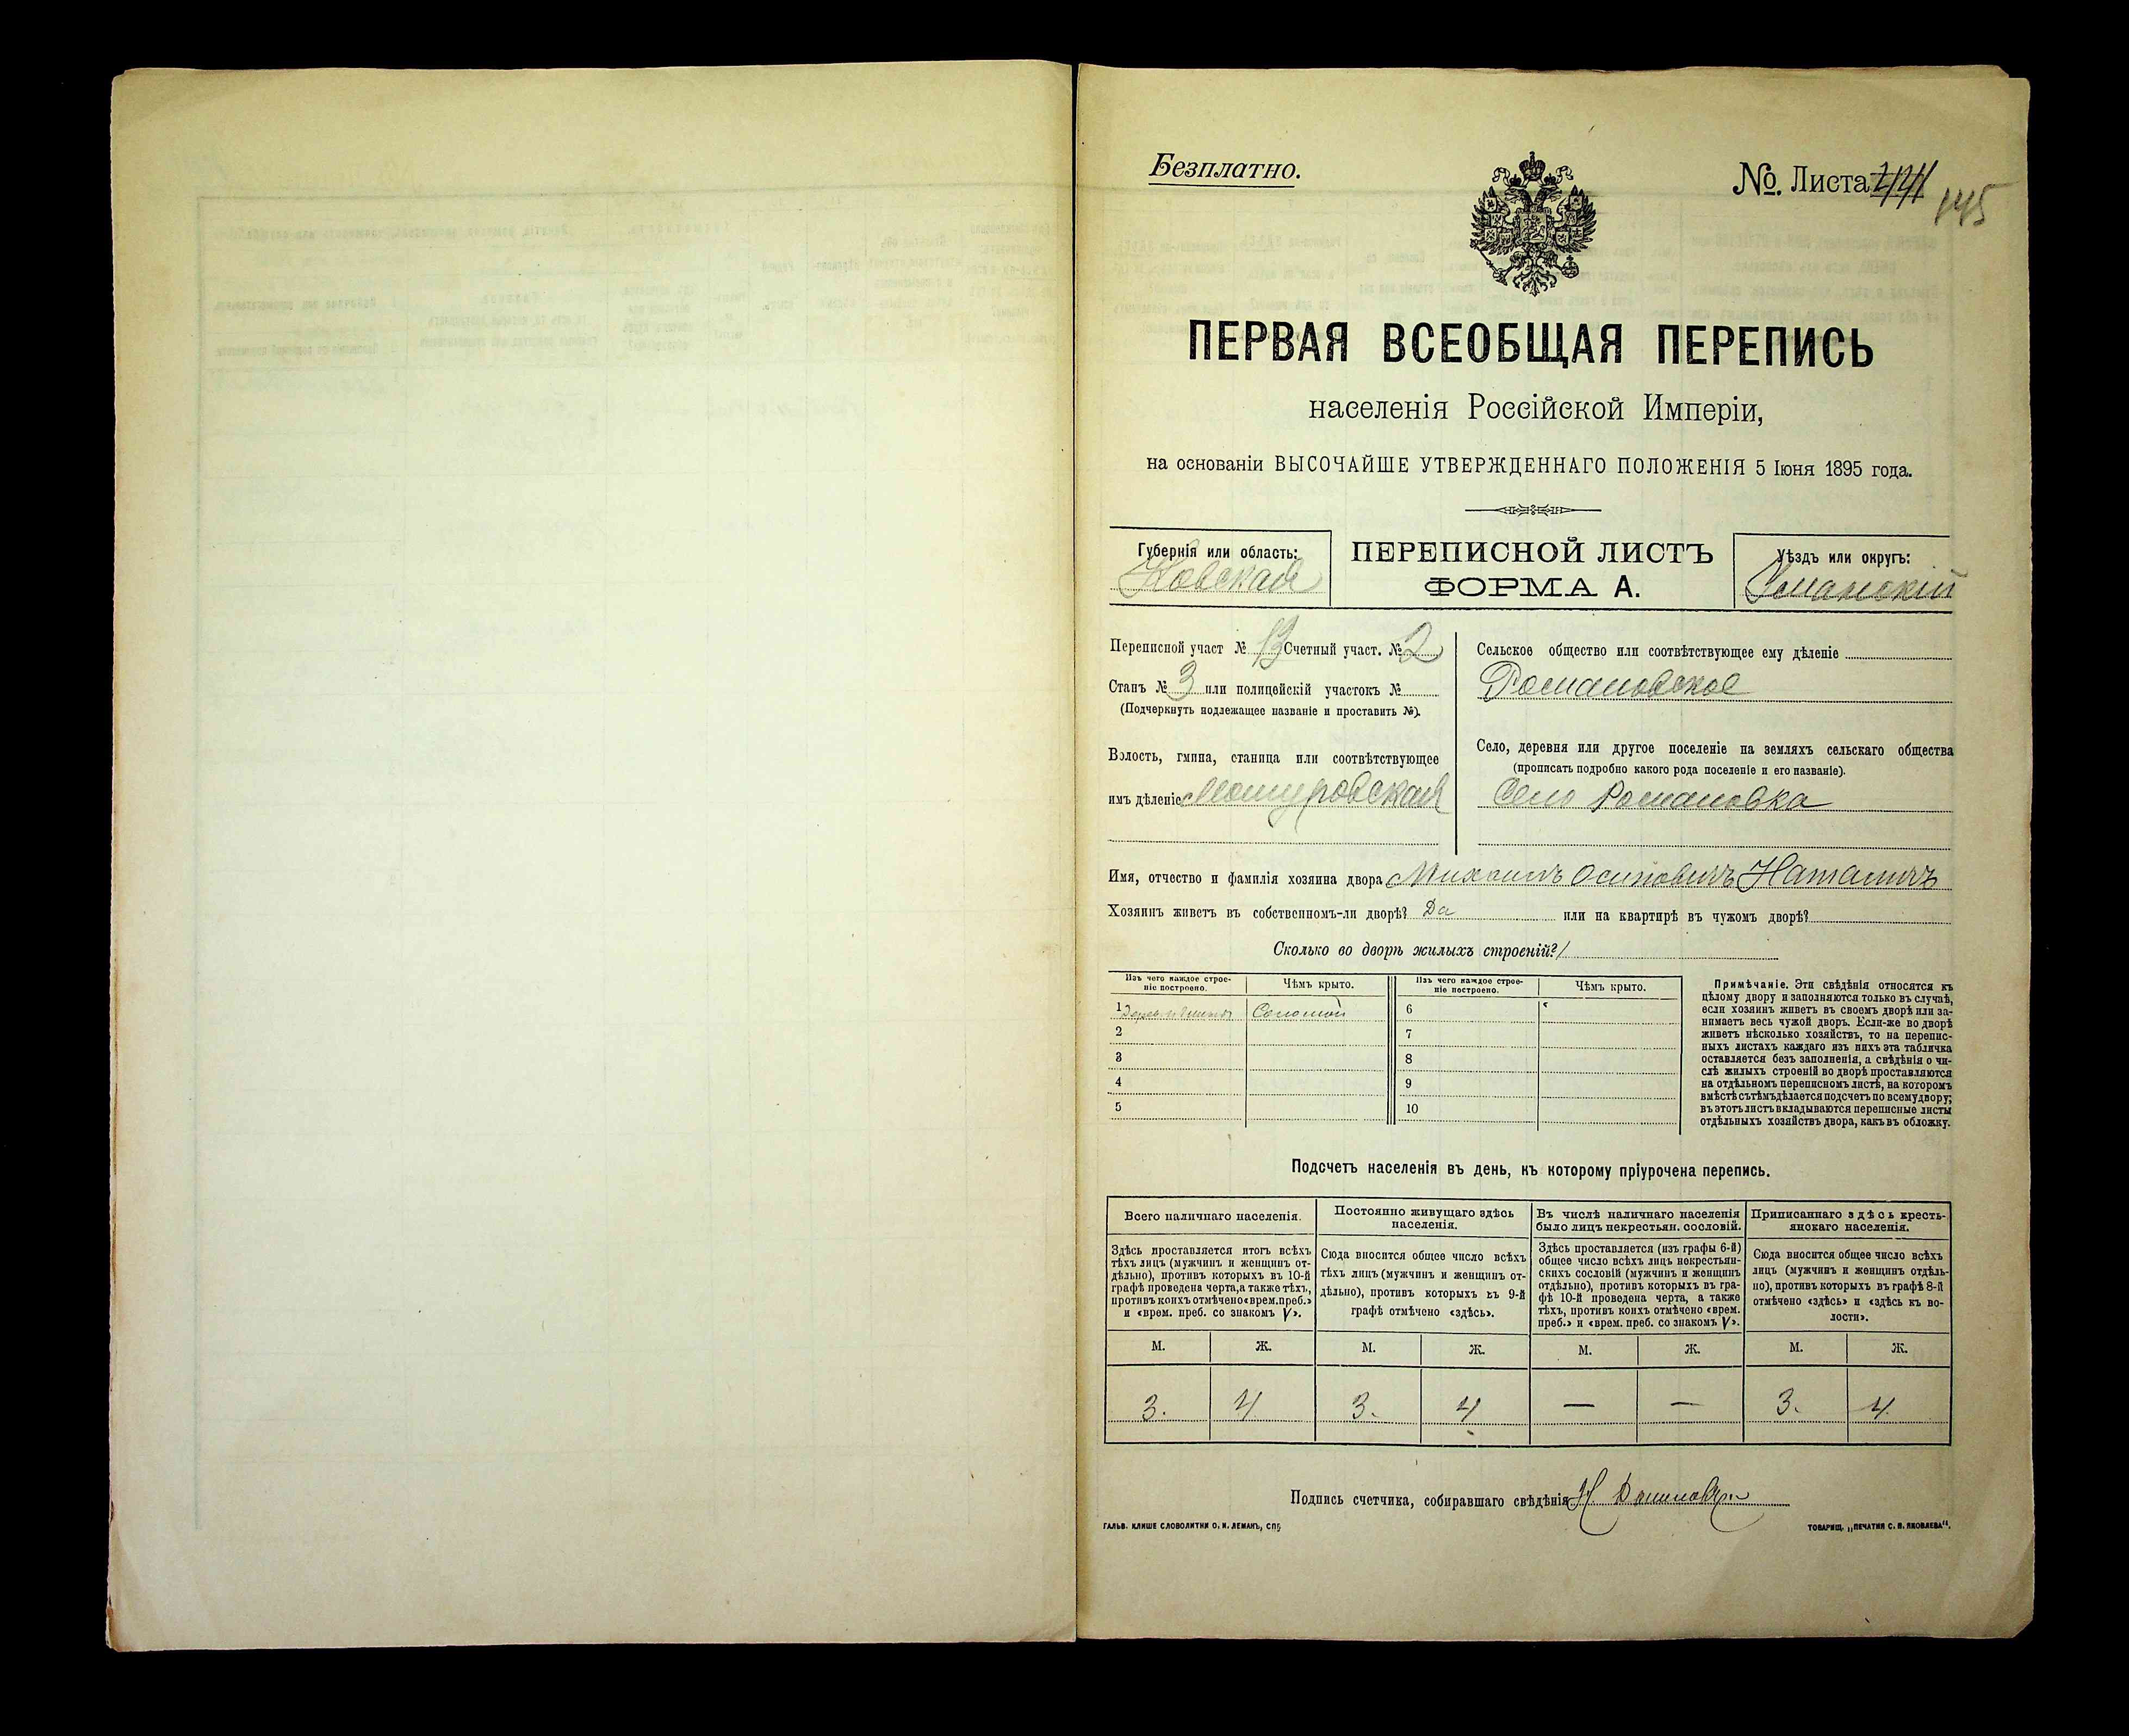 Безплатно.
№. Листа 145
ПЕРВАЯ ВСЕОБЩАЯ ПЕРЕПИСЬ
населенія Россійской Имперіи,
на основаніи ВЫСОЧАЙШЕ УТВЕРЖДЕННАГО ПОЛОЖЕНІЯ 5 Іюня 1895 года.
Губернія или область:
ПЕРЕПИСНОЙ ЛИСТЪ
ФОРМА А.
Уѣздъ или округъ:
Уманскій
Переписной участ № 13 Счетный участ. № 2
Станъ № 3 или полицейскій участокъ №
(Подчеркнуть подлежащее названіе и проставить №).
Волость, гмина, станица или соотвѣтствующее
имъ дѣленіе
Сельское общество или соотвѣтствующее ему дѣленіе
Романовское
Село, деревня или другое поселеніе на земляхъ сельскаго общества
(прописать подробно какого рода поселеніе и его названіе).
Село Романовка
Имя, отчество и фамилія хозяина двора Михаилъ Осиповичъ
Хозяинъ живетъ въ собственномъ-ли дворѣ? Да или на квартирѣ въ чужомъ дворѣ?
Сколько во дворѣ жилыхъ строеній? 1
Изъ чего каждое строе-
ніе построено.
Чѣмъ крыто.
Изъ чего каждое строе-
ніе построено.
Чѣмъ крыто.
1 Соломой
2
3
4
5
6
7
8
9
10
Примѣчаніе. Эти свѣдѣнія относятся къ
цѣлому двору и заполняются только въ случаѣ,
если хозяинъ живетъ въ своемъ дворѣ или за-
нимаетъ весь чужой дворъ. Если-же во дворѣ
живетъ нѣсколько хозяйствъ, то на перепис-
ныхъ листахъ каждаго изъ нихъ эта табличка
оставляется безъ заполненія, а свѣдѣнія о чи-
слѣ жилыхъ строеній во дворѣ проставляются
на отдѣльномъ переписномъ листѣ, на которомъ
вмѣстѣ съ тѣмъ дѣлается подсчетъ по всему двору;
въ этотъ листъ вкладываются переписные листы
отдѣльныхъ хозяйствъ двора, какъ въ обложку.
Подсчетъ населенія въ день, къ которому пріурочена перепись.
Всего наличнаго населенія.
Здѣсь проставляется итогъ всѣхъ
тѣхъ лицъ (мужчинъ и женщинъ от-
дѣльно), противъ которыхъ въ 10-й
графѣ проведена черта, а также тѣхъ,
противъ коихъ отмѣчено «врем. преб.»
и «врем. преб. со знакомъ V».
Постоянно живущаго здѣсь
населенія.
Сюда вносится общее число всѣхъ
тѣхъ лицъ (мужчинъ и женщинъ от-
дѣльно), противъ которыхъ въ 9-й
графѣ отмѣчено «здѣсь».
Въ числѣ наличнаго населенія
было лицъ некрестьян. сословій.
Здѣсь проставляется (изъ графы 6-й)
общее число всѣхъ лицъ некрестьян-
скихъ сословій (мужчинъ и женщинъ
отдѣльно), противъ которыхъ въ гра-
фѣ 10-й проведена черта, а также
тѣхъ, противъ коихъ отмѣчено «врем.
преб.» и «врем. преб. со знакомъ V».
Приписаннаго здѣсь кресть-
янскаго населенія.
Сюда вносится общее число всѣхъ
лицъ (мужчинъ и женщинъ отдѣль-
но), противъ которыхъ въ графѣ 8-й
отмѣчено «здѣсь» и «здѣсь къ во-
лости».
М. Ж. М. Ж. М. Ж. М. Ж.
3. 4 3. 4 — — 3. 4
Подпись счетчика, собиравшаго свѣдѣнія
ГАЛЬВ. КЛИШЕ СЛОВОЛИТНИ О. И. ЛЕМАНЪ, СПБ
ТОВАРИЩ. „ПЕЧАТНЯ С. П. ЯКОВЛЕВА".